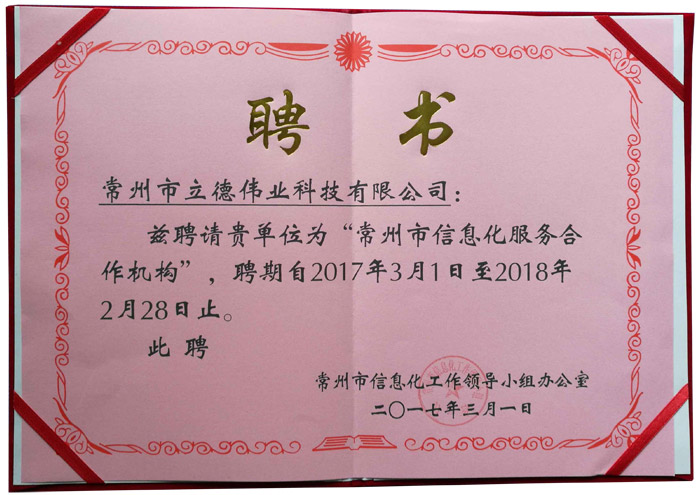 聘 书
常州市立德伟业科技有限公司：
兹聘请贵单位为“常州市信息化服务合
作机构”，聘期自2017年3月1日至2018年
2月28日止。
此 聘
常州市信息化工作领导小组办公室
二〇一七年三月一日